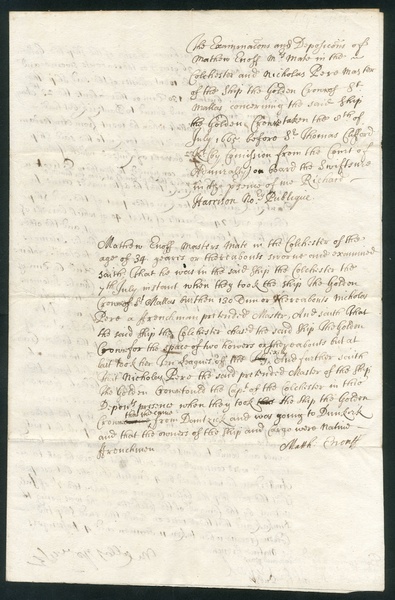 The Examinacons and Deposicons of
Mathew Enoff Mrs Mate in the
Colchester and Nicholas Pere Master
of the Ship the Golden Crowne of St
Mallas concerning the said Ship
the Golden Crowne taken the
July 1665 before Sr Thomas Clifford
by Comission from the Court of
Admiralty on board the Swiftsure
in the presence of me Richard
Harrison Noty Publique
Mathew Enoff Masters Mate in the Colchester of the
age of 34 yeares or thereabouts sworne and examined
saith that he was in the said ship the Colchester the
7th July instant when they took the ship the Golden
Crowne of St Mallas burthen 120 Tun or thereabouts Nicholas
Pere a ffrenchman pretended Master, And saith that
the said ship the Colchester chased the said ship the Golden
Crowne for the space of two howers or thereabouts but at
last took her leagues of the And further saith
that Nicholas Pere the said pretended Master of the ship
the Golden Crowne tould the Capt of the Colchester in this
Deponts presence when they took the ship the Golden
Crowne that she came from Dantzick and was going to Dunkirk
and that the owners of the ship and Cargo were Native
ffrenchmen
Math Enoff